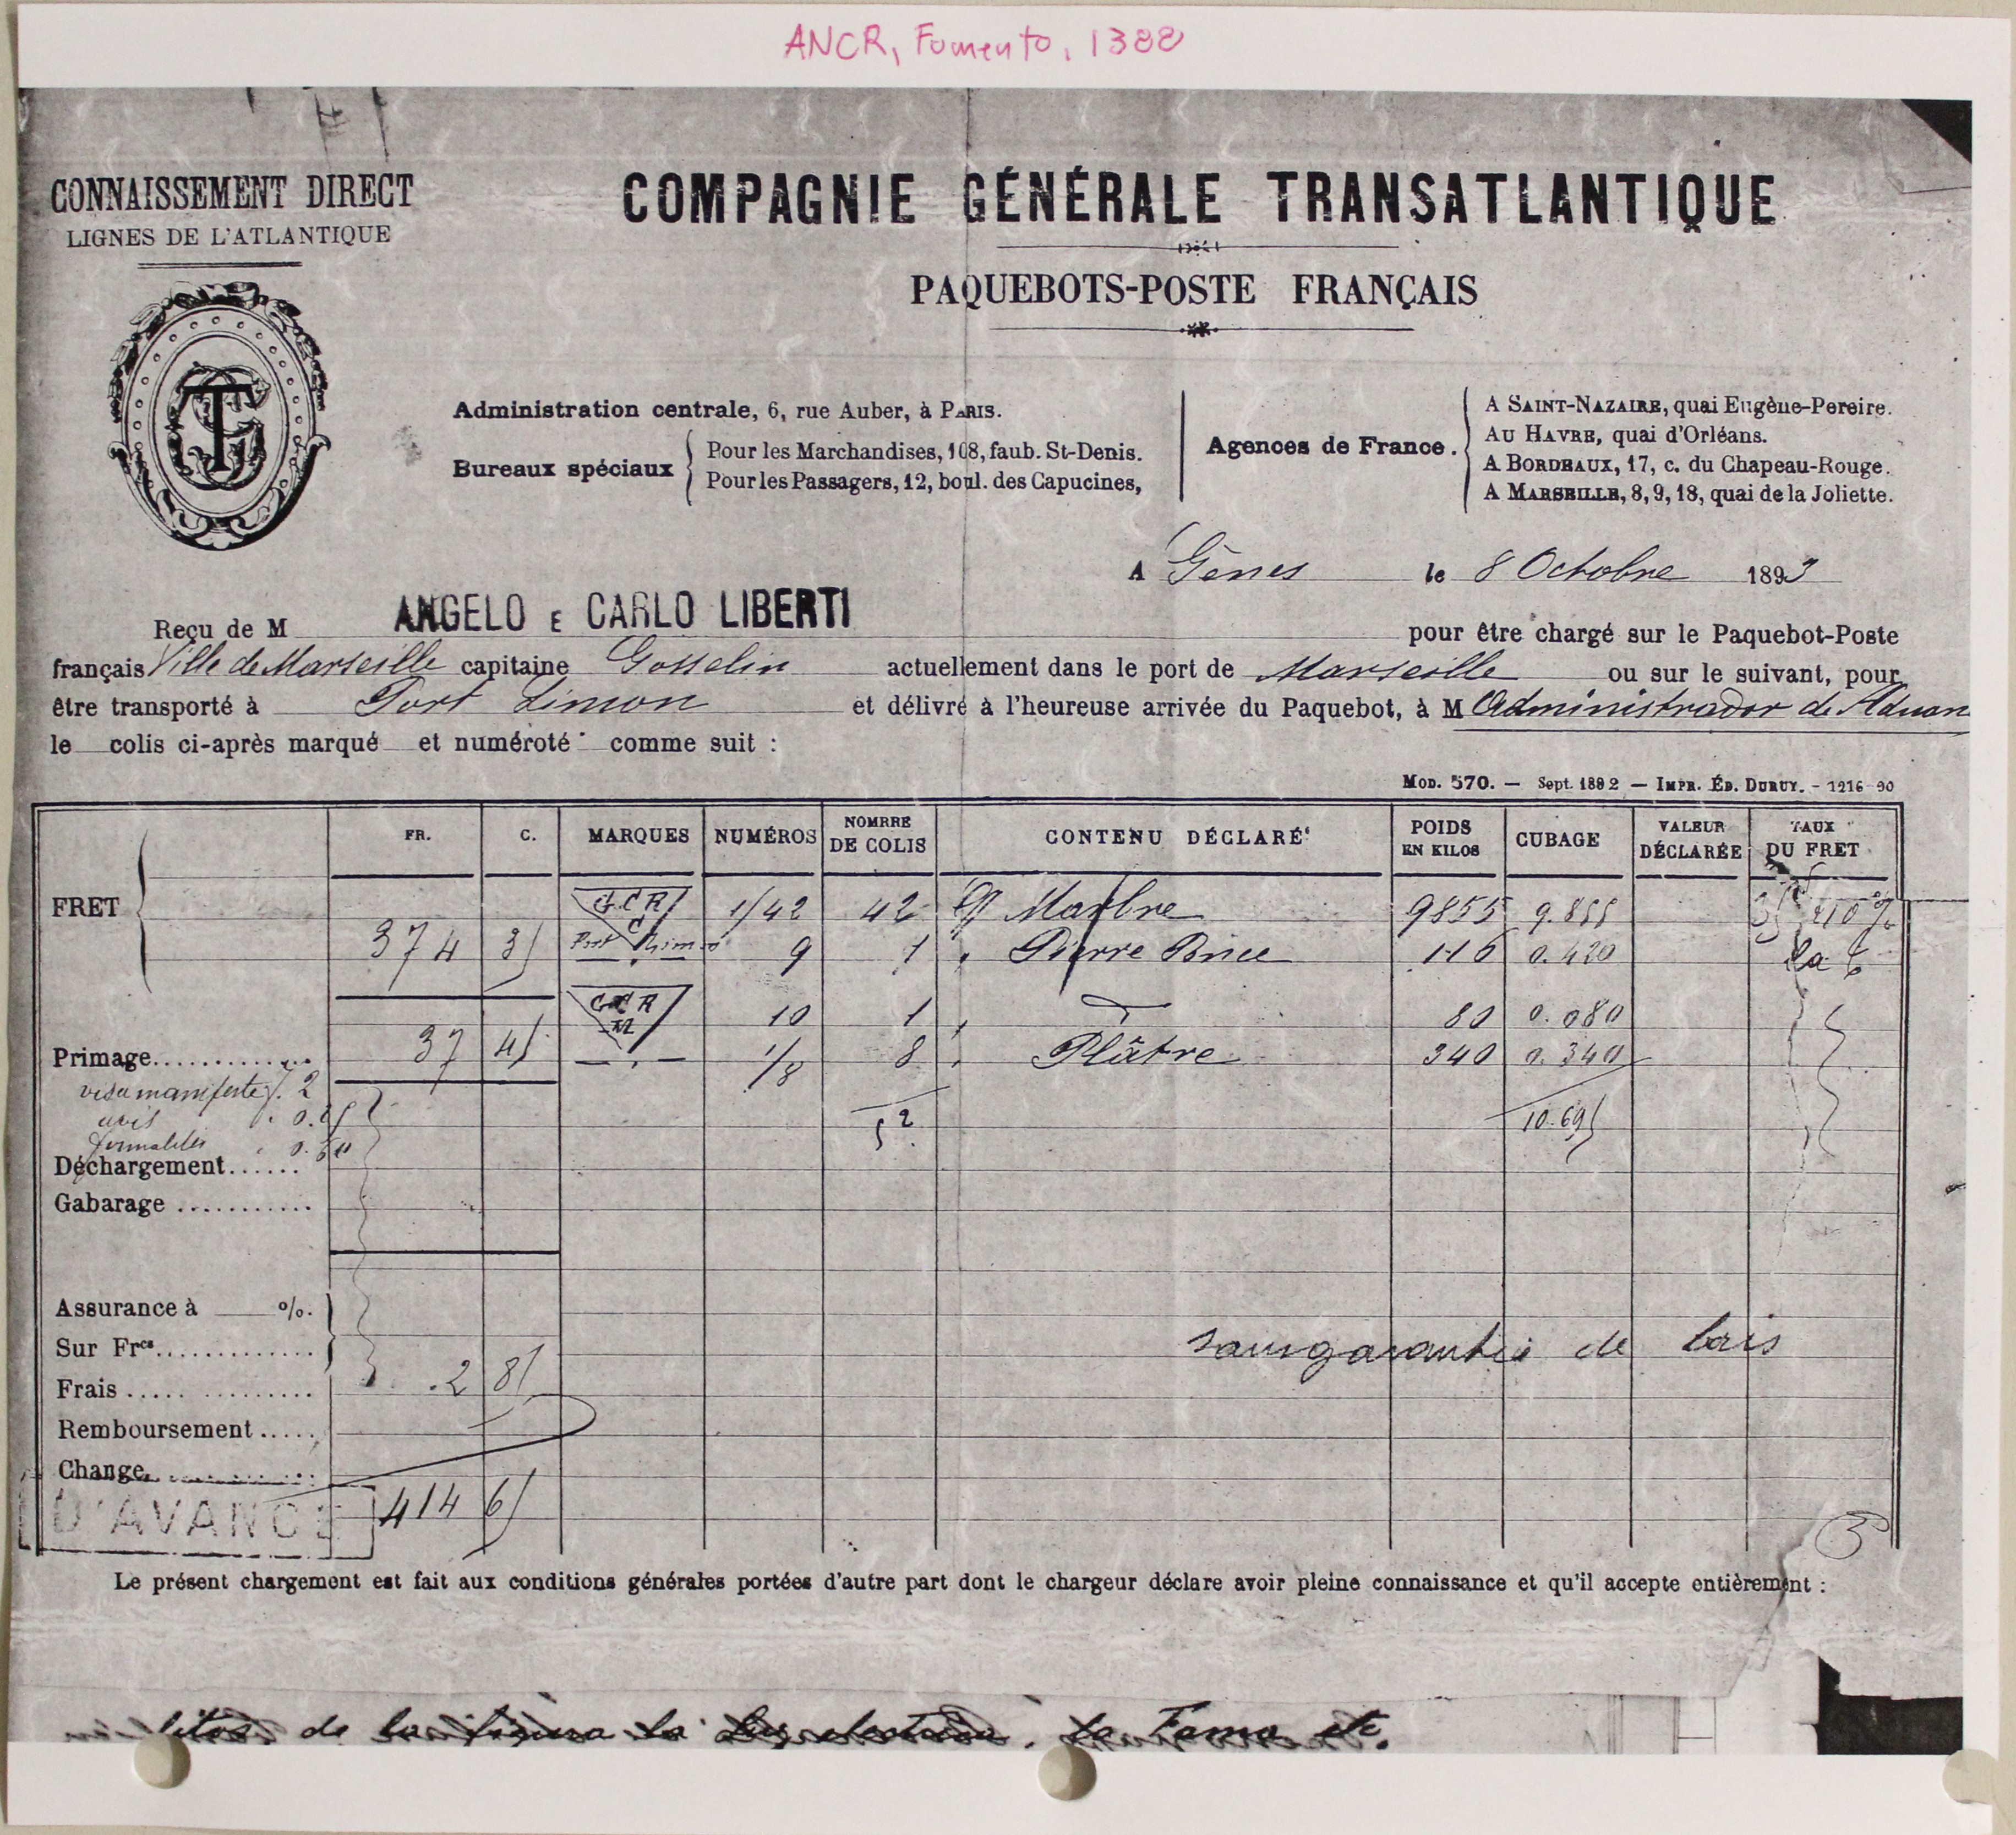 ANCR, Fomento, 1388
CONNAISSEMENT DIRECT
LIGNES DE L'ATLANTIQUE
COMPAGNIE GÉNÉRALE TRANSATLANTIQUE
PAQUEBOTS-POSTE FRANÇAIS
Administration centrale, 6, rue Auber, à PARIS.
Bureaux spéciaux
Pour les Marchandises, 108, faub. St-Denis.
Pour les Passagers, 12, boul. des Capucines,
Agences de France.
A SAINT-NAZAIRE, quai Eugène-Pereire.
AU HAVRE, quai d'Orléans.
A BORDEAUX, 17, c. du Chapeau-Rouge.
A MARSEILLE, 8, 9, 18, quai de la Joliette.
A Gênes le 8 Octobre 1893
Reçu de M ANGELO E CARLO LIBERTI pour être chargé sur le Paquebot-Poste
français Ville de Marseille capitaine Gosselin actuellement dans le port de Marseille ou sur le suivant, pour
être transporté à Port Limon et délivré à l'heureuse arrivée du Paquebot, à M Administrador de Aduan
le colis ci-après marqué et numéroté comme suit :
MOD. 570. — Sept. 1892 — IMPR. ÉD. DURUY. - 1216-90
FR. C. MARQUES NUMÉROS NOMRRE DE COLIS CONTENU DÉCLARÉ POIDS EN KILOS CUBAGE VALEUR DÉCLARÉE TAUX DU FRET
FRET G.C.R C 1/42 42 Marbre 9855 9.855
374 35 Port Limon 9 1 " Pierre 0.420
10 1 " 80 0.080
Primage 37 45 1/8 8 " Plâtre 340 0.340
visa manifeste f. 2
avis
52 10.695
formalités
Déchargement
Gabarage
Assurance à %.
Sur Frcs
sans garantie de bris
Frais 2 85
Remboursement
Change
D'AVANCE 414 65
Le présent chargement est fait aux conditions générales portées d'autre part dont le chargeur déclare avoir pleine connaissance et qu'il accepte entièrement :
de la figura la la Fama etc.